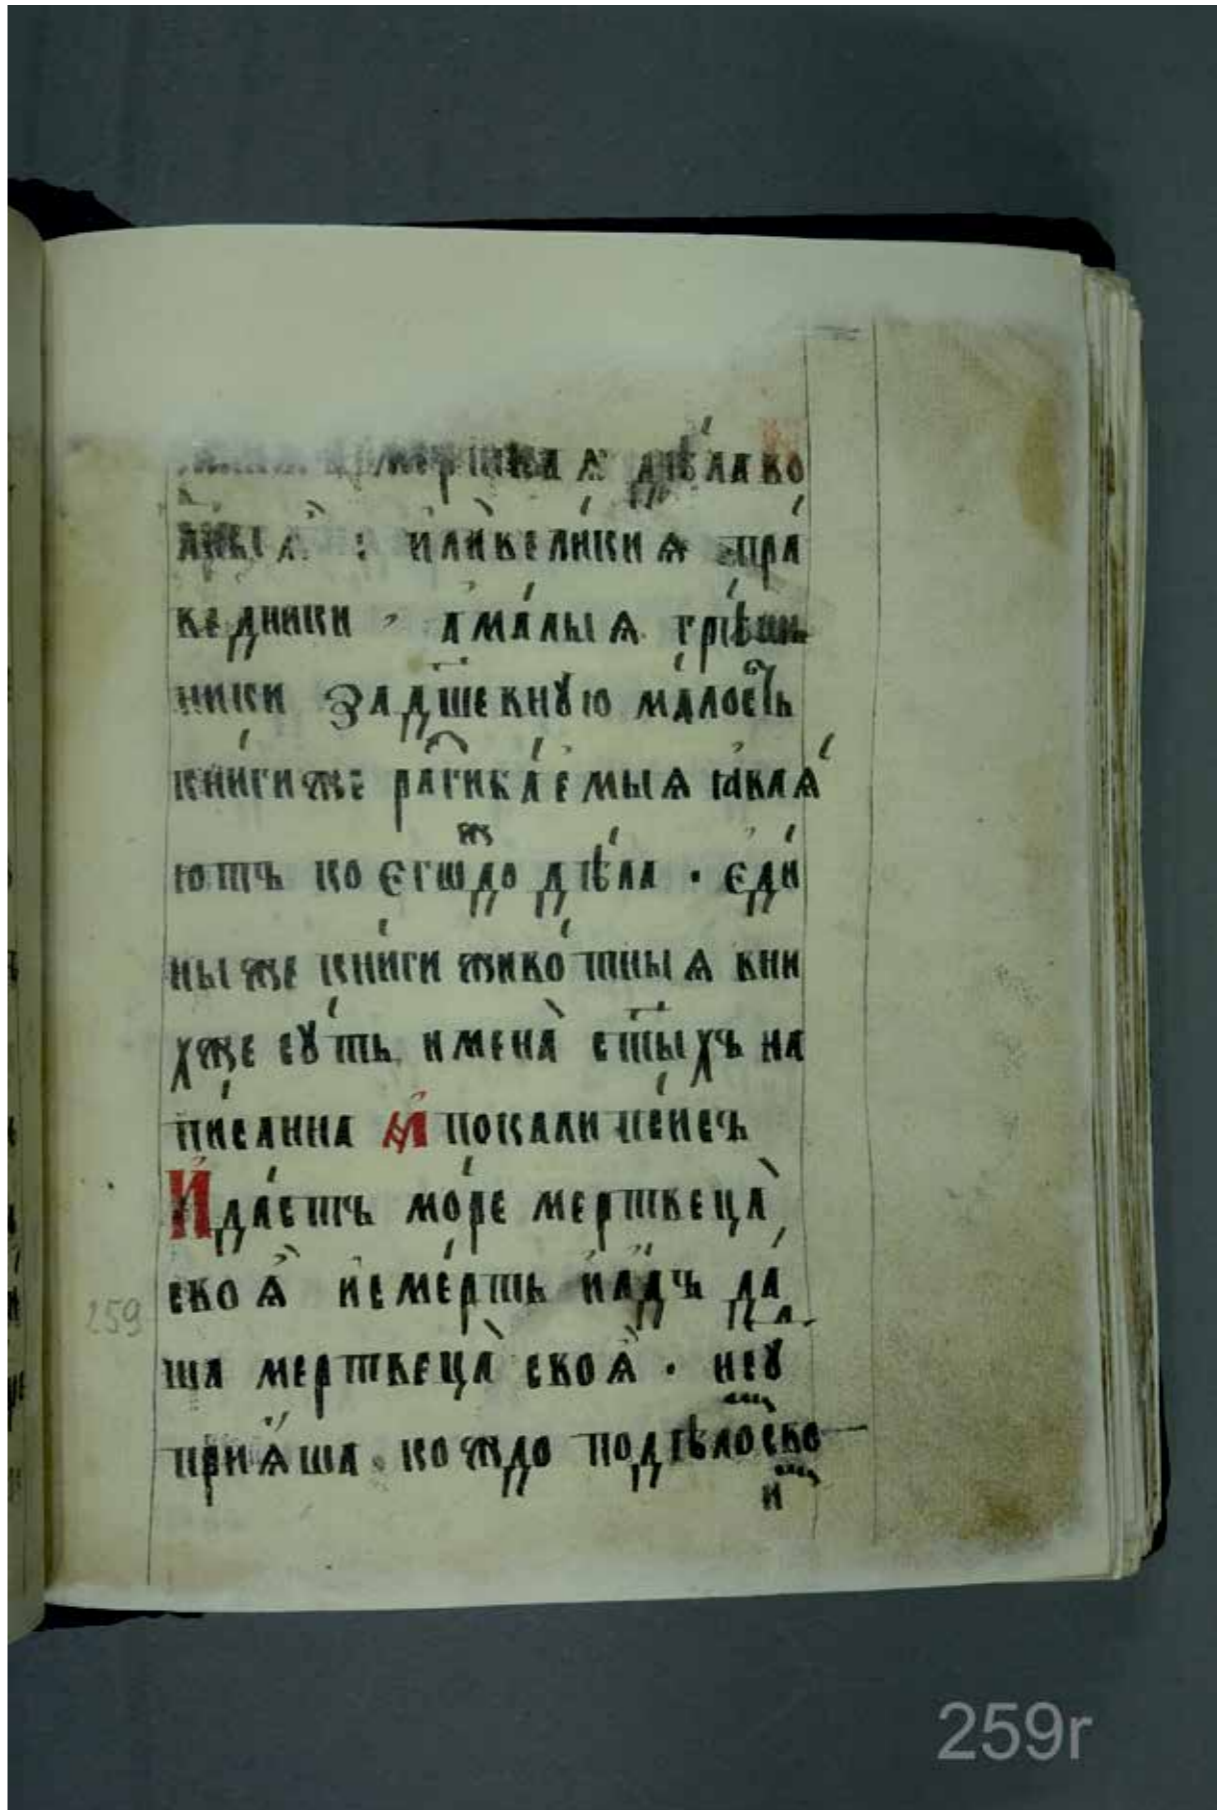 дѣ́ла во
и҆лѝ вели́киѧ пра́
ведники , а҆ ма́лыѧ грѣ́шн
ники за дш҃евнꙋю ма́лость
кни́ги же разгиба́емыѧ ꙗ҆влѧ́
ютъ коегѡждо дѣ́ла . є҆ди́
ны же кни́ги живо́тныѧ в ни
хже сꙋ́ть имена̀ ст҃ы́хъ на
пи́санна А҆покали́ѱеисъ
И҆ да́стъ мо́ре мертвеца̀
своѧ̀ и҆ сме́рть и҆ а҆́дъ да́
ша мертвеца̀ своѧ̀ . и сꙋд
прїѧ́ша кождо по дѣлом сво
им
259
259r